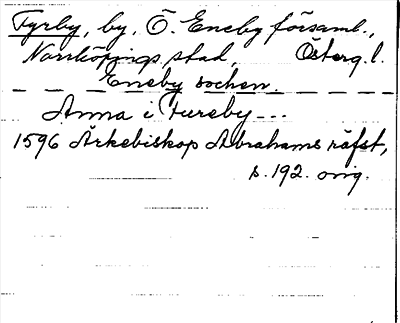 Fyrby, by, Ö. Eneby församl.,
Norrköpings stad, Österg. l.
Eneby socken.
Anna i Fureby---
1596 Ärkebiskop Abrahams räfst,
s. 192. orig.